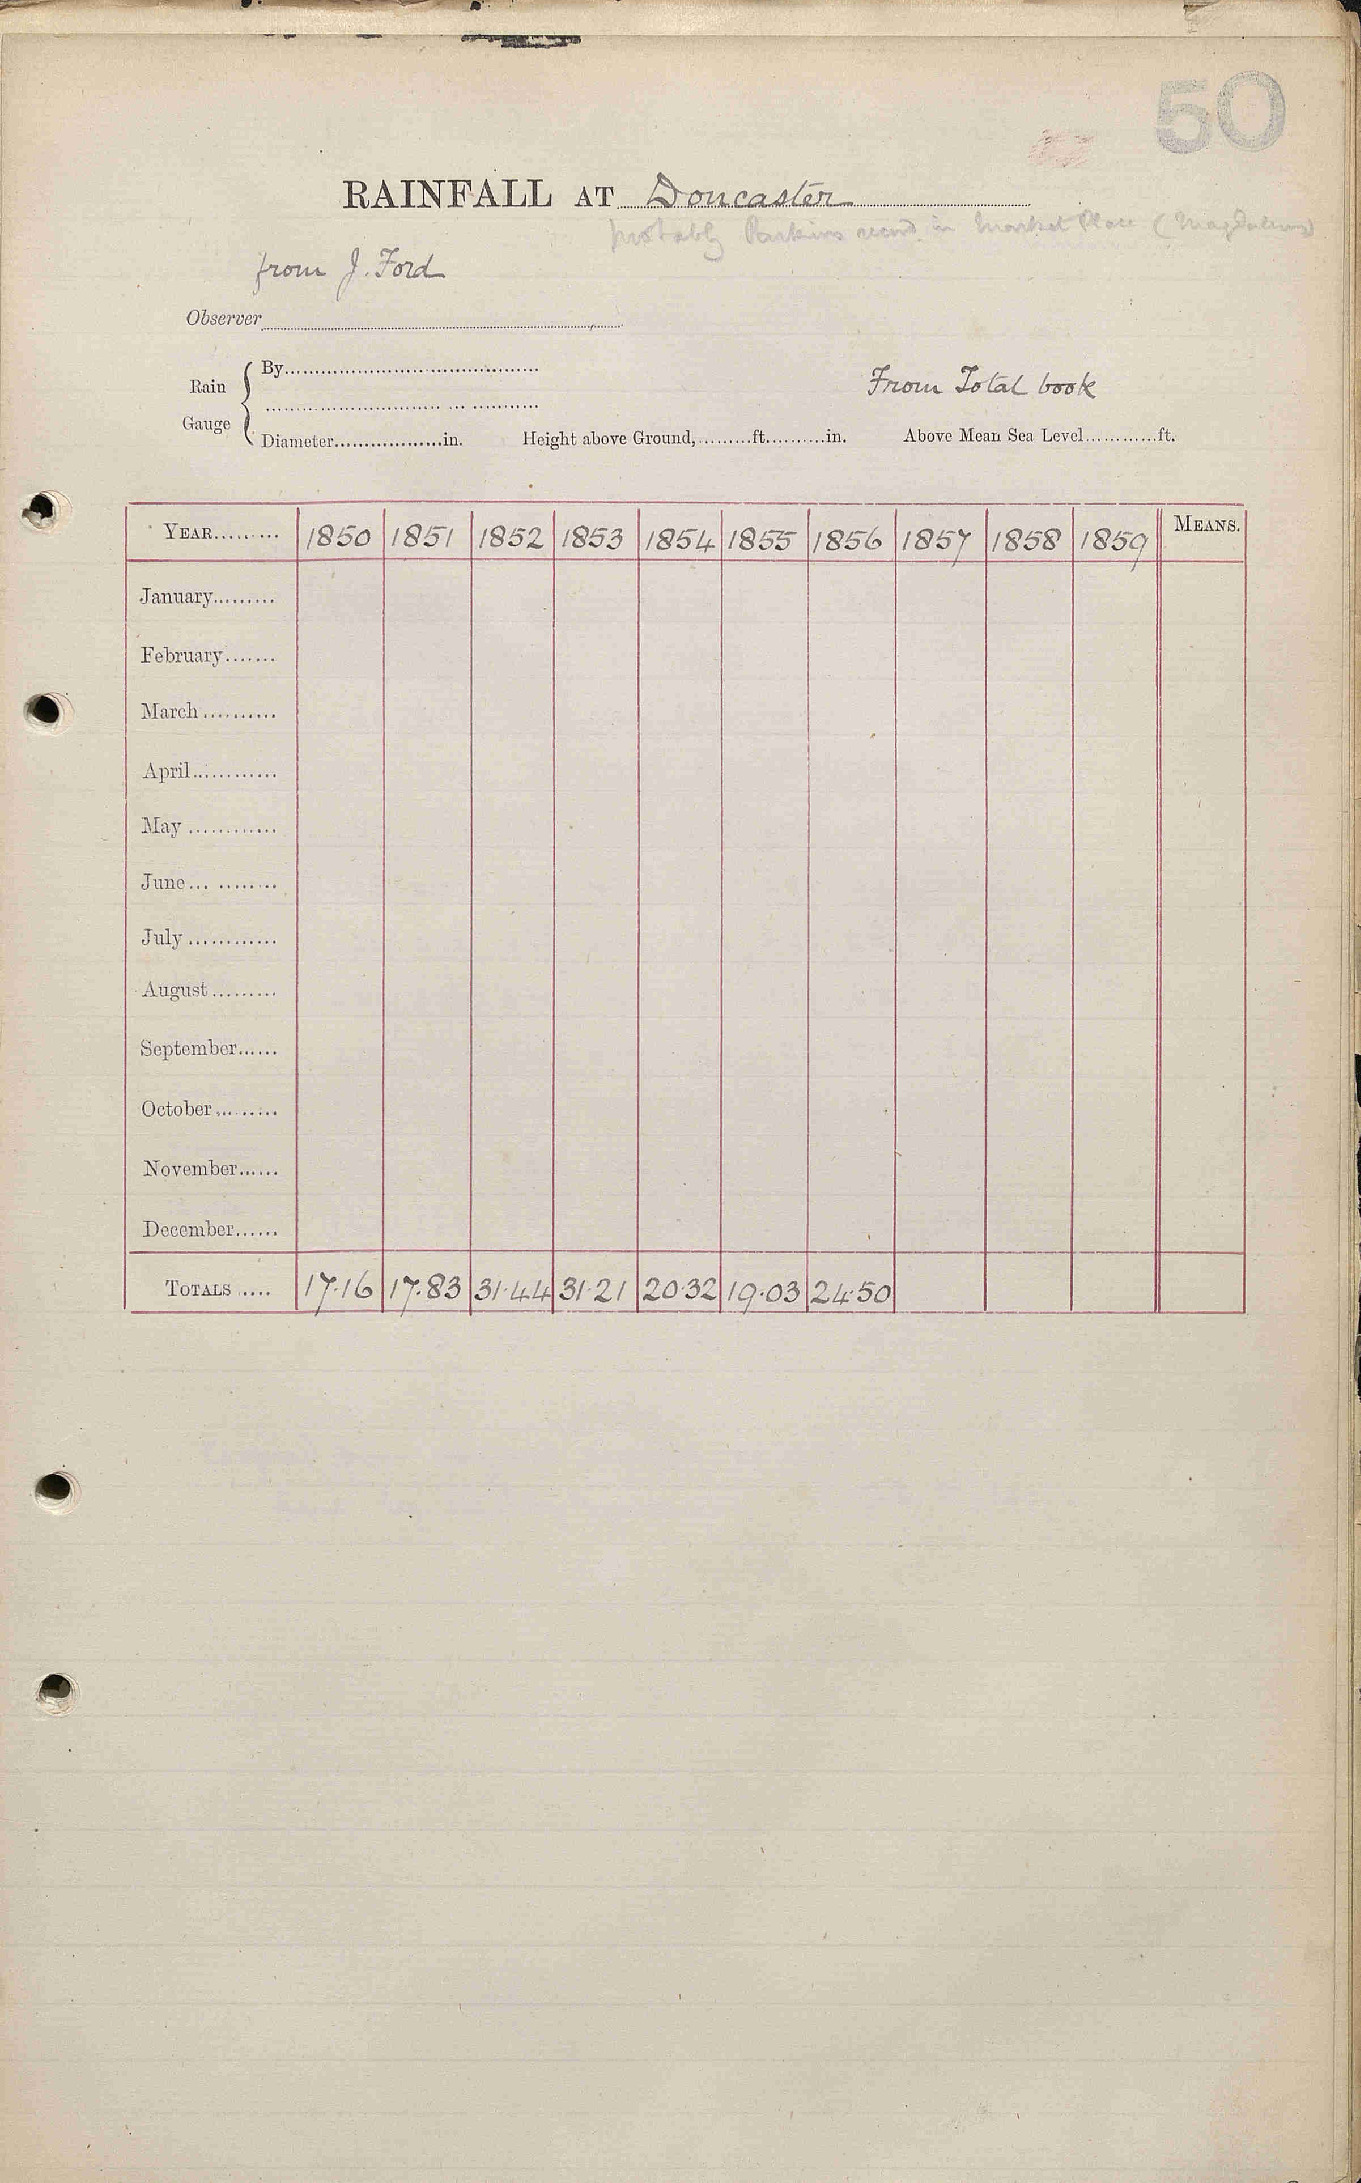 50
RAINFALL AT Doncaster
probably Parkins record in Market Place (Magdalens)
from J. Ford
Observer
Rain Gauge { By
Diameter..................in. Height above Ground,.........ft..........in. Above Mean Sea Level............ft.
From Total book
YEAR......... 1850 1851 1852 1853 1854 1855 1856 1857 1858 1859 MEANS.
January.........
February.......
March..........
April............
May............
June............
July............
August.........
September......
October.........
November......
December......
TOTALS..... 17·16 17·83 31·44 31·21 20·32 19·03 24·50